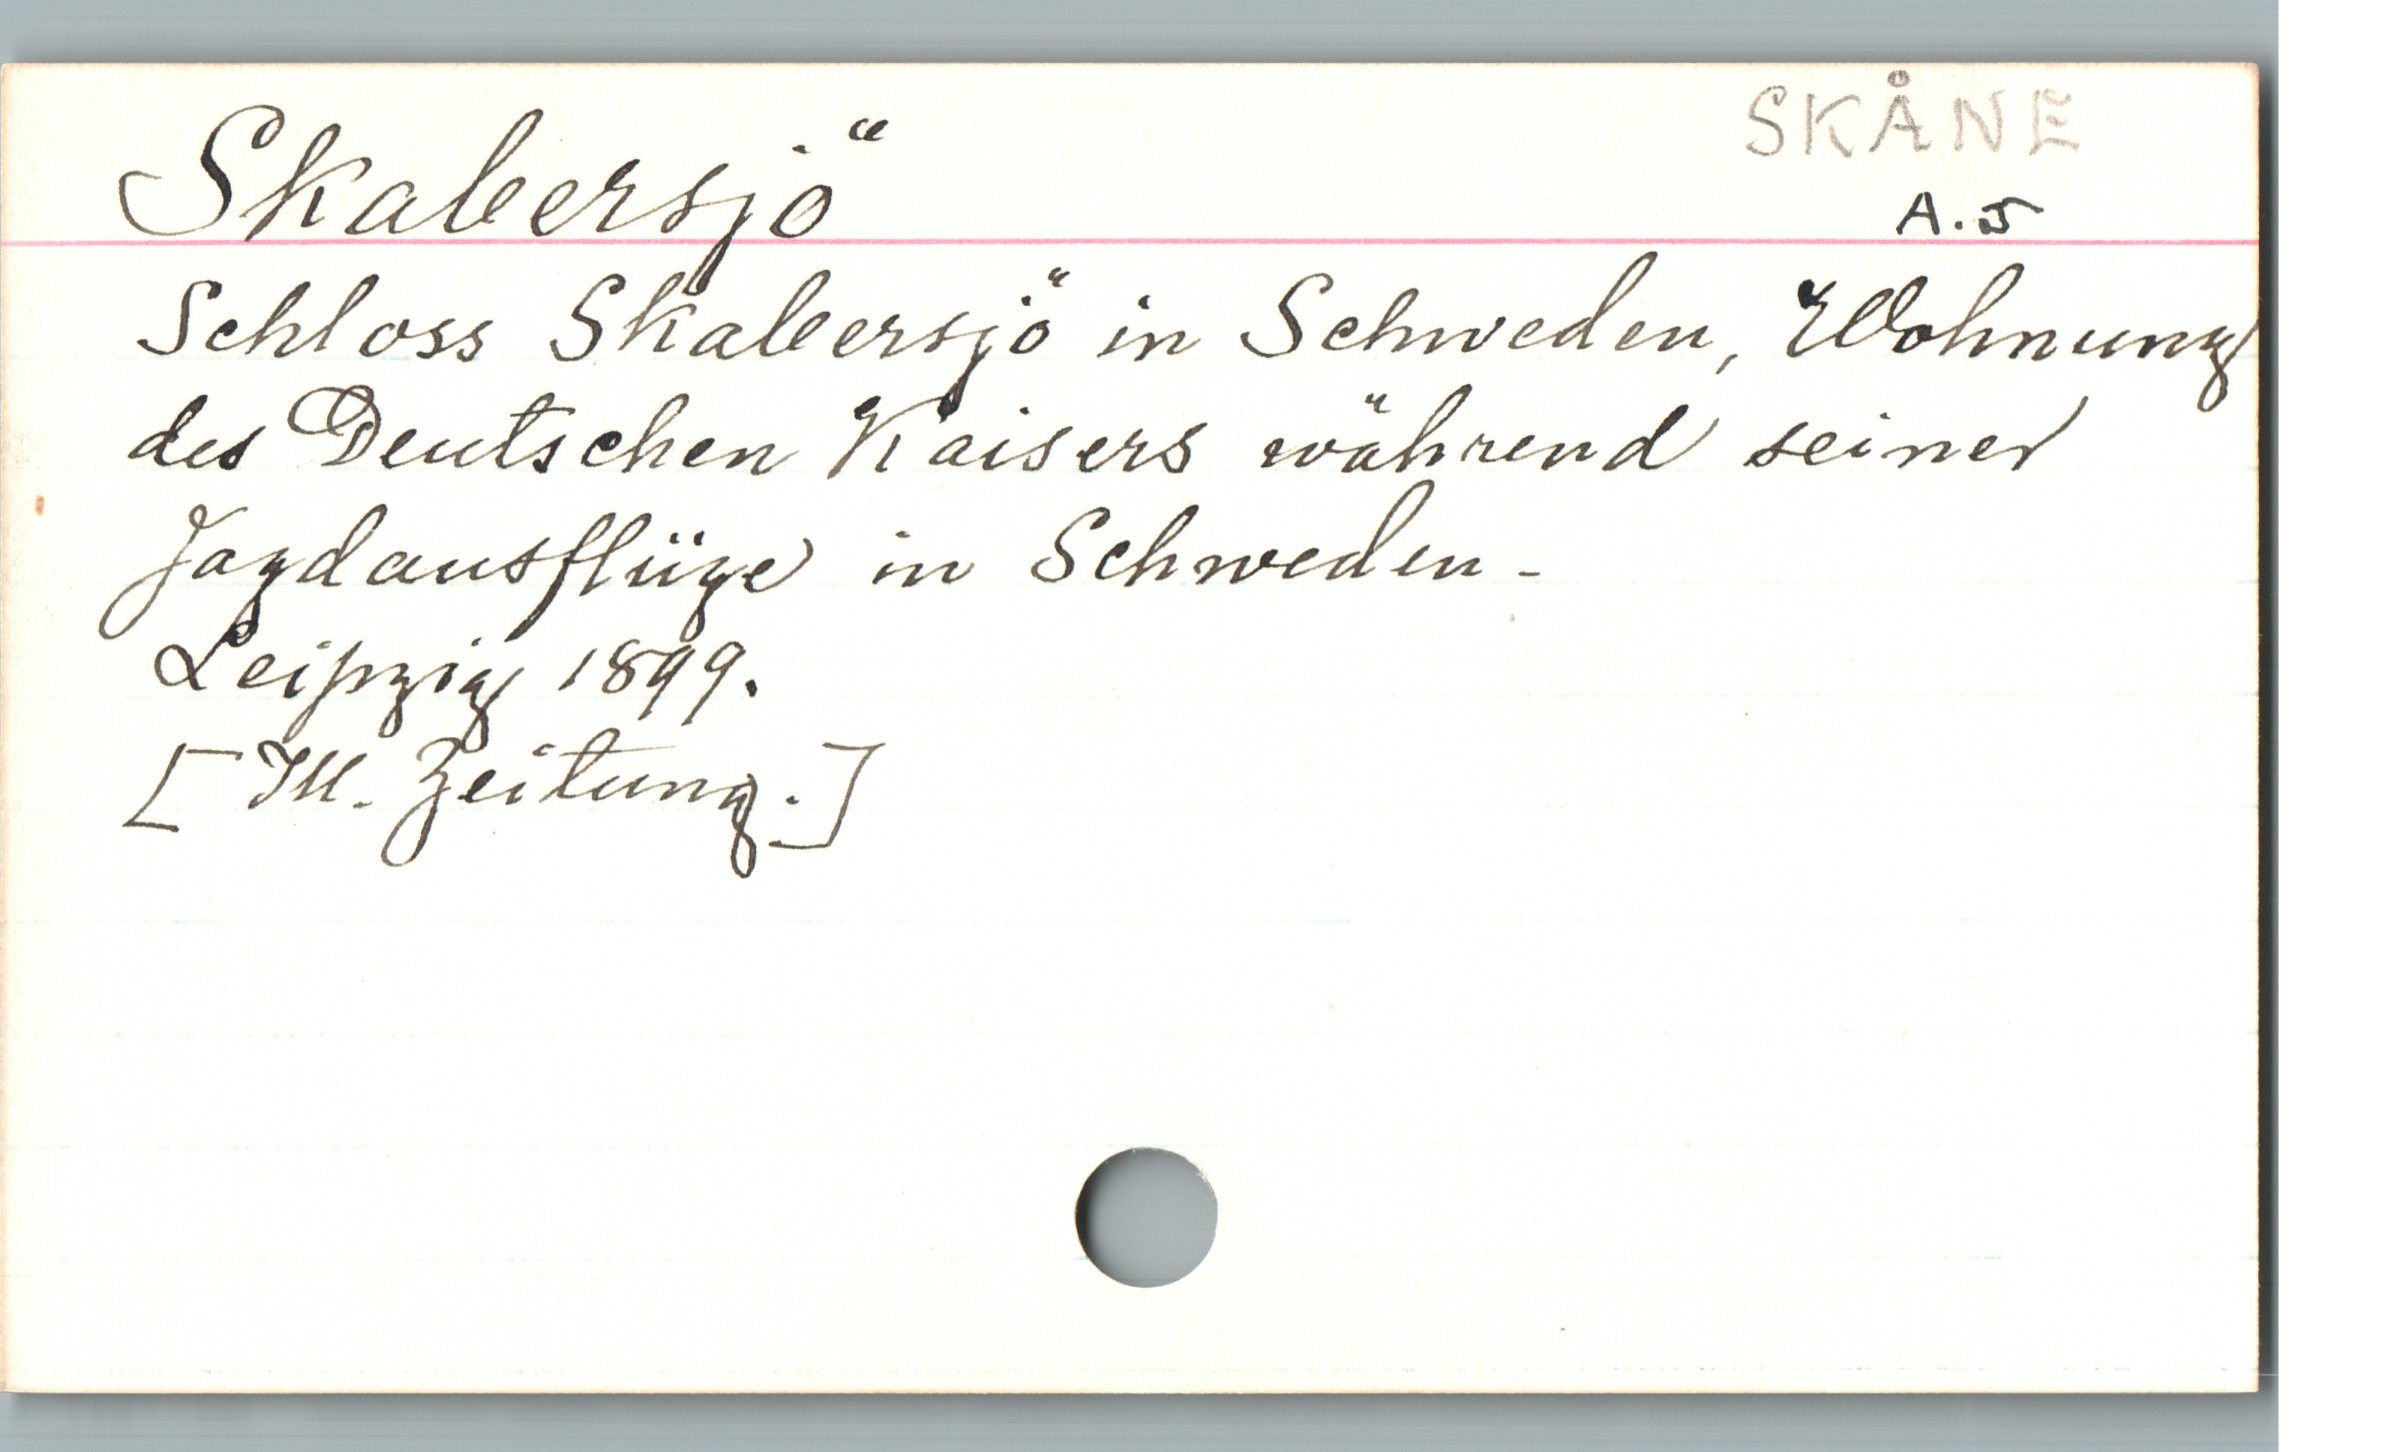 SKÅNE
Skabersjö
A.J
Schloss Skabersjö in Schweden, Wohnung
des Deutschen Kaisers während seiner
Jagdausflüge in Schweden -
Leipzig 1899.
[Ill. Zeitung.]